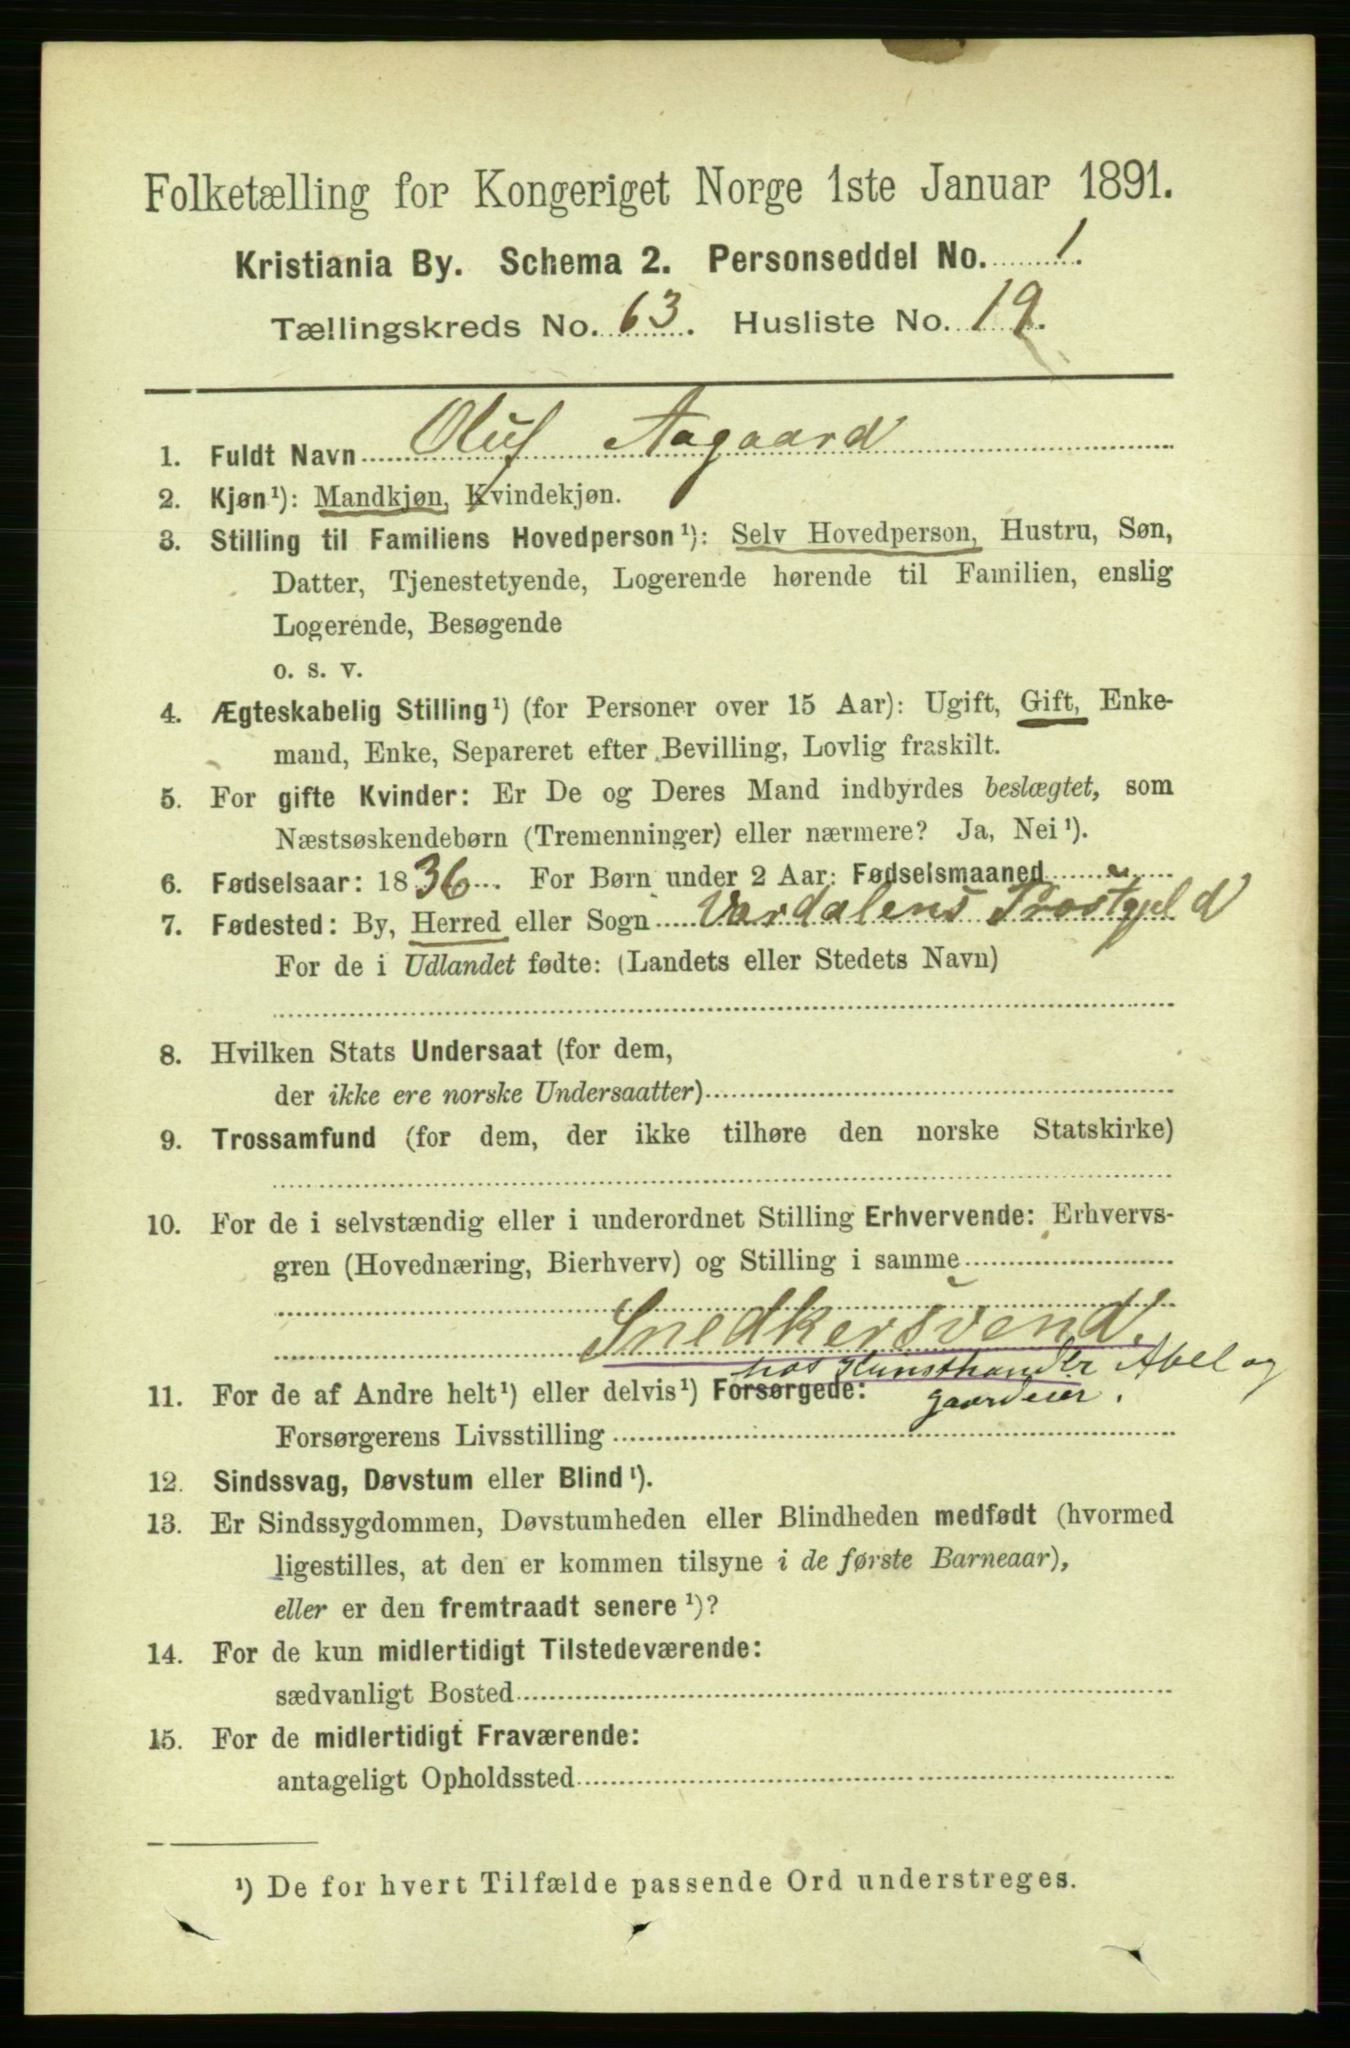 Folketælling for Kongeriget Norge 1ste Januar 1891.
Kristiania By. Schema 2. Personseddel No. 1.
Tællingskreds No. 63. Husliste No. 19.
1. Fuldt Navn Oluf Aagaard
2. Kjøn¹): Mandkjøn, Kvindekjøn.
3. Stilling til Familiens Hovedperson¹): Selv Hovedperson, Hustru, Søn,
Datter, Tjenestetyende, Logerende hørende til Familien, enslig
Logerende, Besøgende
o. s. v.
4. Ægteskabelig Stilling¹) (for Personer over 15 Aar): Ugift, Gift, Enke-
mand, Enke, Separeret efter Bevilling, Lovlig fraskilt.
5. For gifte Kvinder: Er De og Deres Mand indbyrdes beslægtet, som
Næstsøskendebørn (Tremenninger) eller nærmere? Ja, Nei¹).
6. Fødselsaar: 1836. For Børn under 2 Aar: Fødselsmaaned
7. Fødested: By, Herred eller Sogn Værdalens Præstgjeld
For de i Udlandet fødte: (Landets eller Stedets Navn)
8. Hvilken Stats Undersaat (for dem,
der ikke ere norske Undersaatter)
9. Trossamfund (for dem, der ikke tilhøre den norske Statskirke)
10. For de i selvstændig eller i underordnet Stilling Erhvervende: Erhvervs-
gren (Hovednæring, Bierhverv) og Stilling i samme
Snedkersvend.
hos Kunsthandlr Abel og
11. For de af Andre helt¹) eller delvis¹) Forsørgede: gaardeier.
Forsørgerens Livsstilling
12. Sindssvag, Døvstum eller Blind¹).
13. Er Sindssygdommen, Døvstumheden eller Blindheden medfødt (hvormed
ligestilles, at den er kommen tilsyne i de første Barneaar),
eller er den fremtraadt senere¹)?
14. For de kun midlertidigt Tilstedeværende:
sædvanligt Bosted
15. For de midlertidigt Fraværende:
antageligt Opholdssted
¹) De for hvert Tilfælde passende Ord understreges.